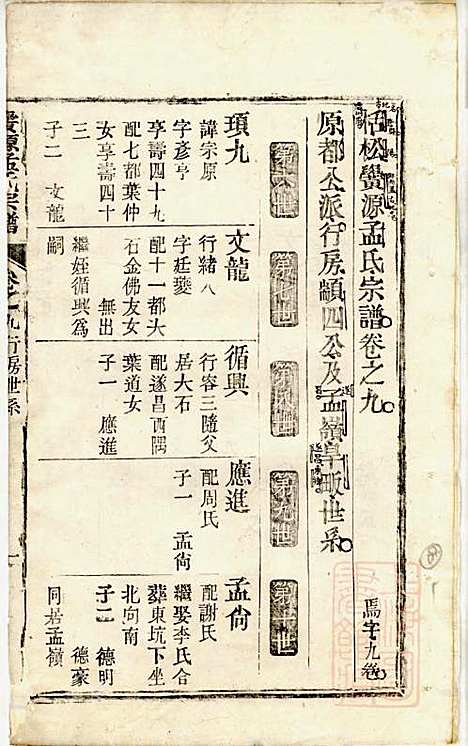 括松贊源孟氏宗譜卷之九
馬字九卷
原都公派行房顓四公及孟嶺阜畈世系
第六世
第七世
第八世
第九世
第十世
頊九
諱宗原
字彥亨
享壽四十九
配七都葉仲
女享壽四十
三
子二 文龍
文龍
行緒八
字廷夔
配十一都大
石金佛友女
無出
繼姪循興爲
嗣
循興
行容三隨父
居大石
配遂昌西隅
葉道女
子一 應進
應進
配周氏
子一 孟尙
孟尙
配謝氏
繼娶李氏合
葬東坑下坐
北向南
子二 德明
德豪
同居孟嶺
宗譜
卷之九行房世系
一